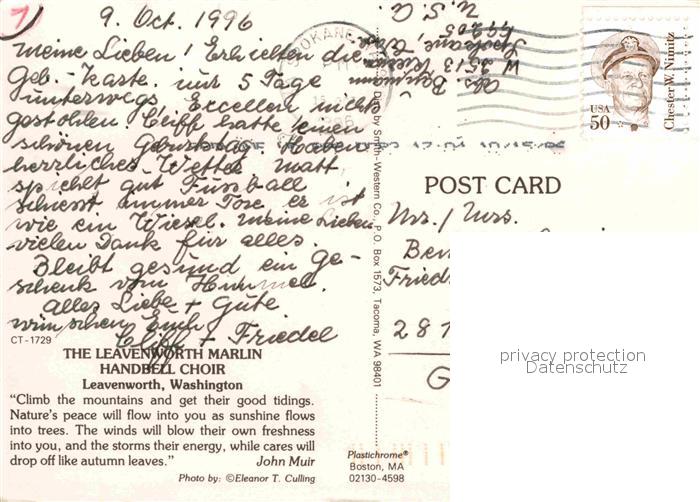 9. Oct. 1996
meine Lieben! Erhielten die
Geb.-Karte. nur 5 Tage
unterwegs, Excellent nicht
gestohlen. Cliff hatte einen
schönen Geburtstag. Haben
herrliches Wetter Matt
spielt gut Fussball
schiesst immer Tore er ist
wie ein Wiesel. meine Lieben
vielen Dank für alles.
Bleibt gesund ein Ge-
schenk vom Himmel.
Alles Liebe + Gute
wünschen Euch
Cliff + Friedel
CT-1729
THE LEAVENWORTH MARLIN
HANDBELL CHOIR
Leavenworth, Washington
“Climb the mountains and get their good tidings.
Nature's peace will flow into you as sunshine flows
into trees. The winds will blow their own freshness
into you, and the storms their energy, while cares will
drop off like autumn leaves.” John Muir
Photo by: ©Eleanor T. Culling
U.S.A.
99205
Spokane,
W 2513
SPOKANE
1996
by Smith-Western Co., P.O. Box 1573, Tacoma, WA 98401
USA
50
Chester W. Nimitz
POST CARD
Mr./Mrs.
Ben
Fried
287
G
Plastichrome®
Boston, MA
02130-4598
privacy protection
Datenschutz